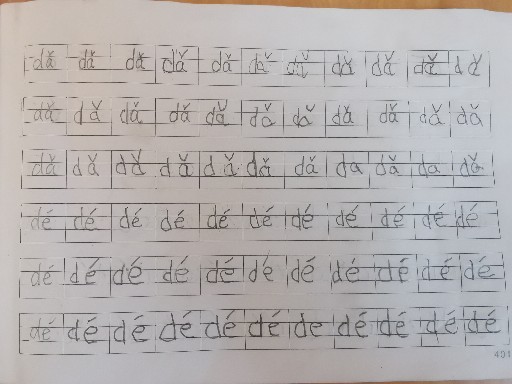 dǎ dǎ dǎ dǎ dǎ dǎ dǎ dǎ dǎ dǎ dǎ
dǎ dǎ dǎ dǎ dǎ dǎ dǎ dǎ dǎ dǎ dǎ
dǎ dǎ dǎ dǎ dǎ dǎ dǎ da dǎ da dǎ
dé dé dé dé dé dé dé dé dé dé dé
dé dé dé dé dé dé dé dé dé dé dé
dé dé dé dé dé dé de dé dé dé dé
401